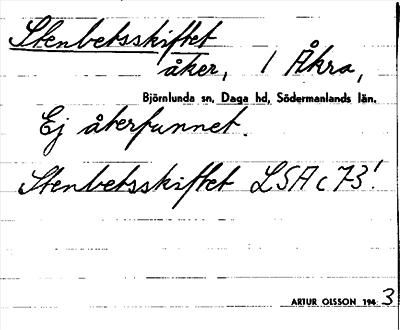 Stenbetsskiftet
åker, 1 Åkra,
Björnlunda sn, Daga hd, Södermanlands län.
Ej återfunnet.
Stenbetsskiftet LSA c 73!
ARTUR OLSSON 194 3